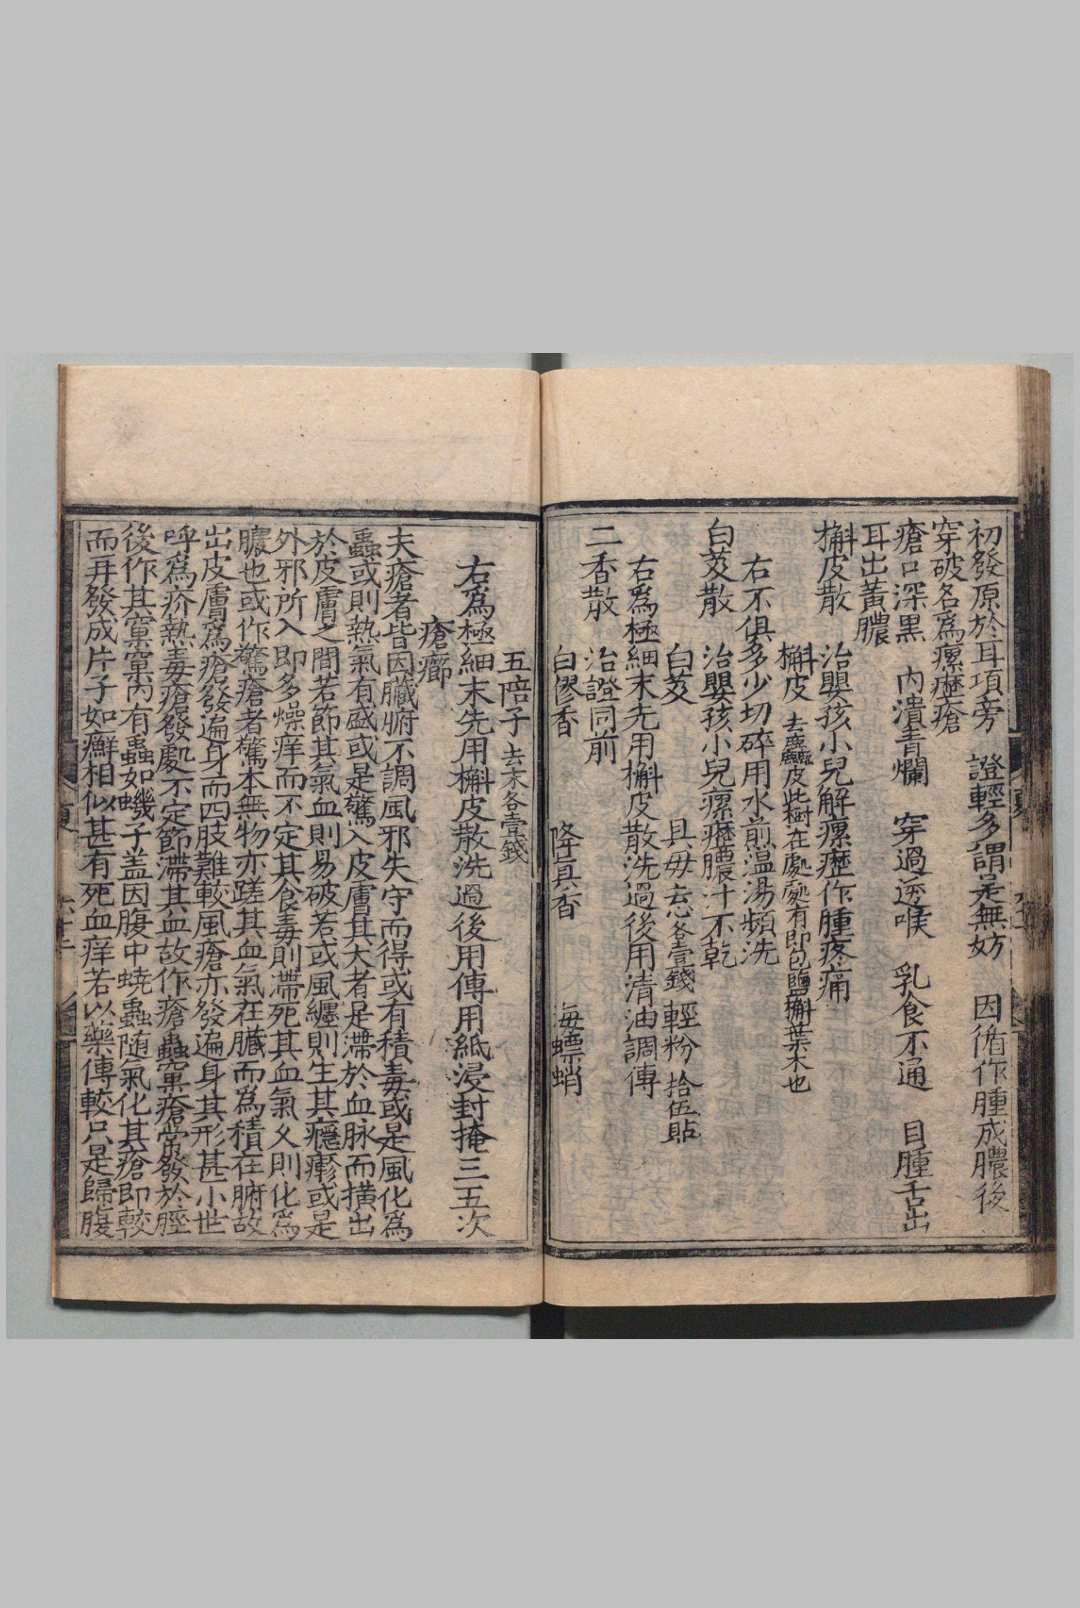 初發原於耳項旁　證輕多謂是無妨　因循作腫成膿後
穿破名爲瘰癧瘡
瘡口深黑　內潰青爛　穿過透喉　乳食不通　目腫舌出
耳出黃膿
槲皮散　治嬰孩小兒解瘰癧作腫疼痛
槲皮 去麄皮此樹在處處有即包鹽槲葉木也
右不俱多少切碎用水煎温湯頻洗
白芨散　治嬰孩小兒瘰癧膿汁不乾
白芨　具毋 去心各壹錢 輕粉 拾伍貼
右爲極細末先用槲皮散洗過後用清油調傅
二香散　治證同前
白膠香　降真香　海螵蛸
五倍子 去末各壹錢
右爲極細末先用槲皮散洗過後用傅用紙浸封掩三五次
瘡癤
夫瘡者皆因臟腑不調風邪失守而得或有積毒或是風化爲
蟲或則熱氣有盛或是驚入皮膚其大者是滯於血脉而攅出
於皮膚之間若節其氣血則易破若或風纏則生其癮瘮或是
外邪所入即多燥痒而不定其食毒則滯死其血氣久則化爲
膿也或作驚瘡者驚本無物亦蹉其血氣在臟而爲積在腑故
出皮膚爲瘡發遍身而四肢難較風瘡亦發遍身其形甚小世
呼爲疥熱毒瘡發處不定節滯其血故作瘡蟲窠瘡常發於脛
後作其窠窠內有蟲如蟣子盖因腹中蟯蟲随氣化其瘡即較
而再發成片子如癬相似甚有死血痒若以藥傅較只是歸腹